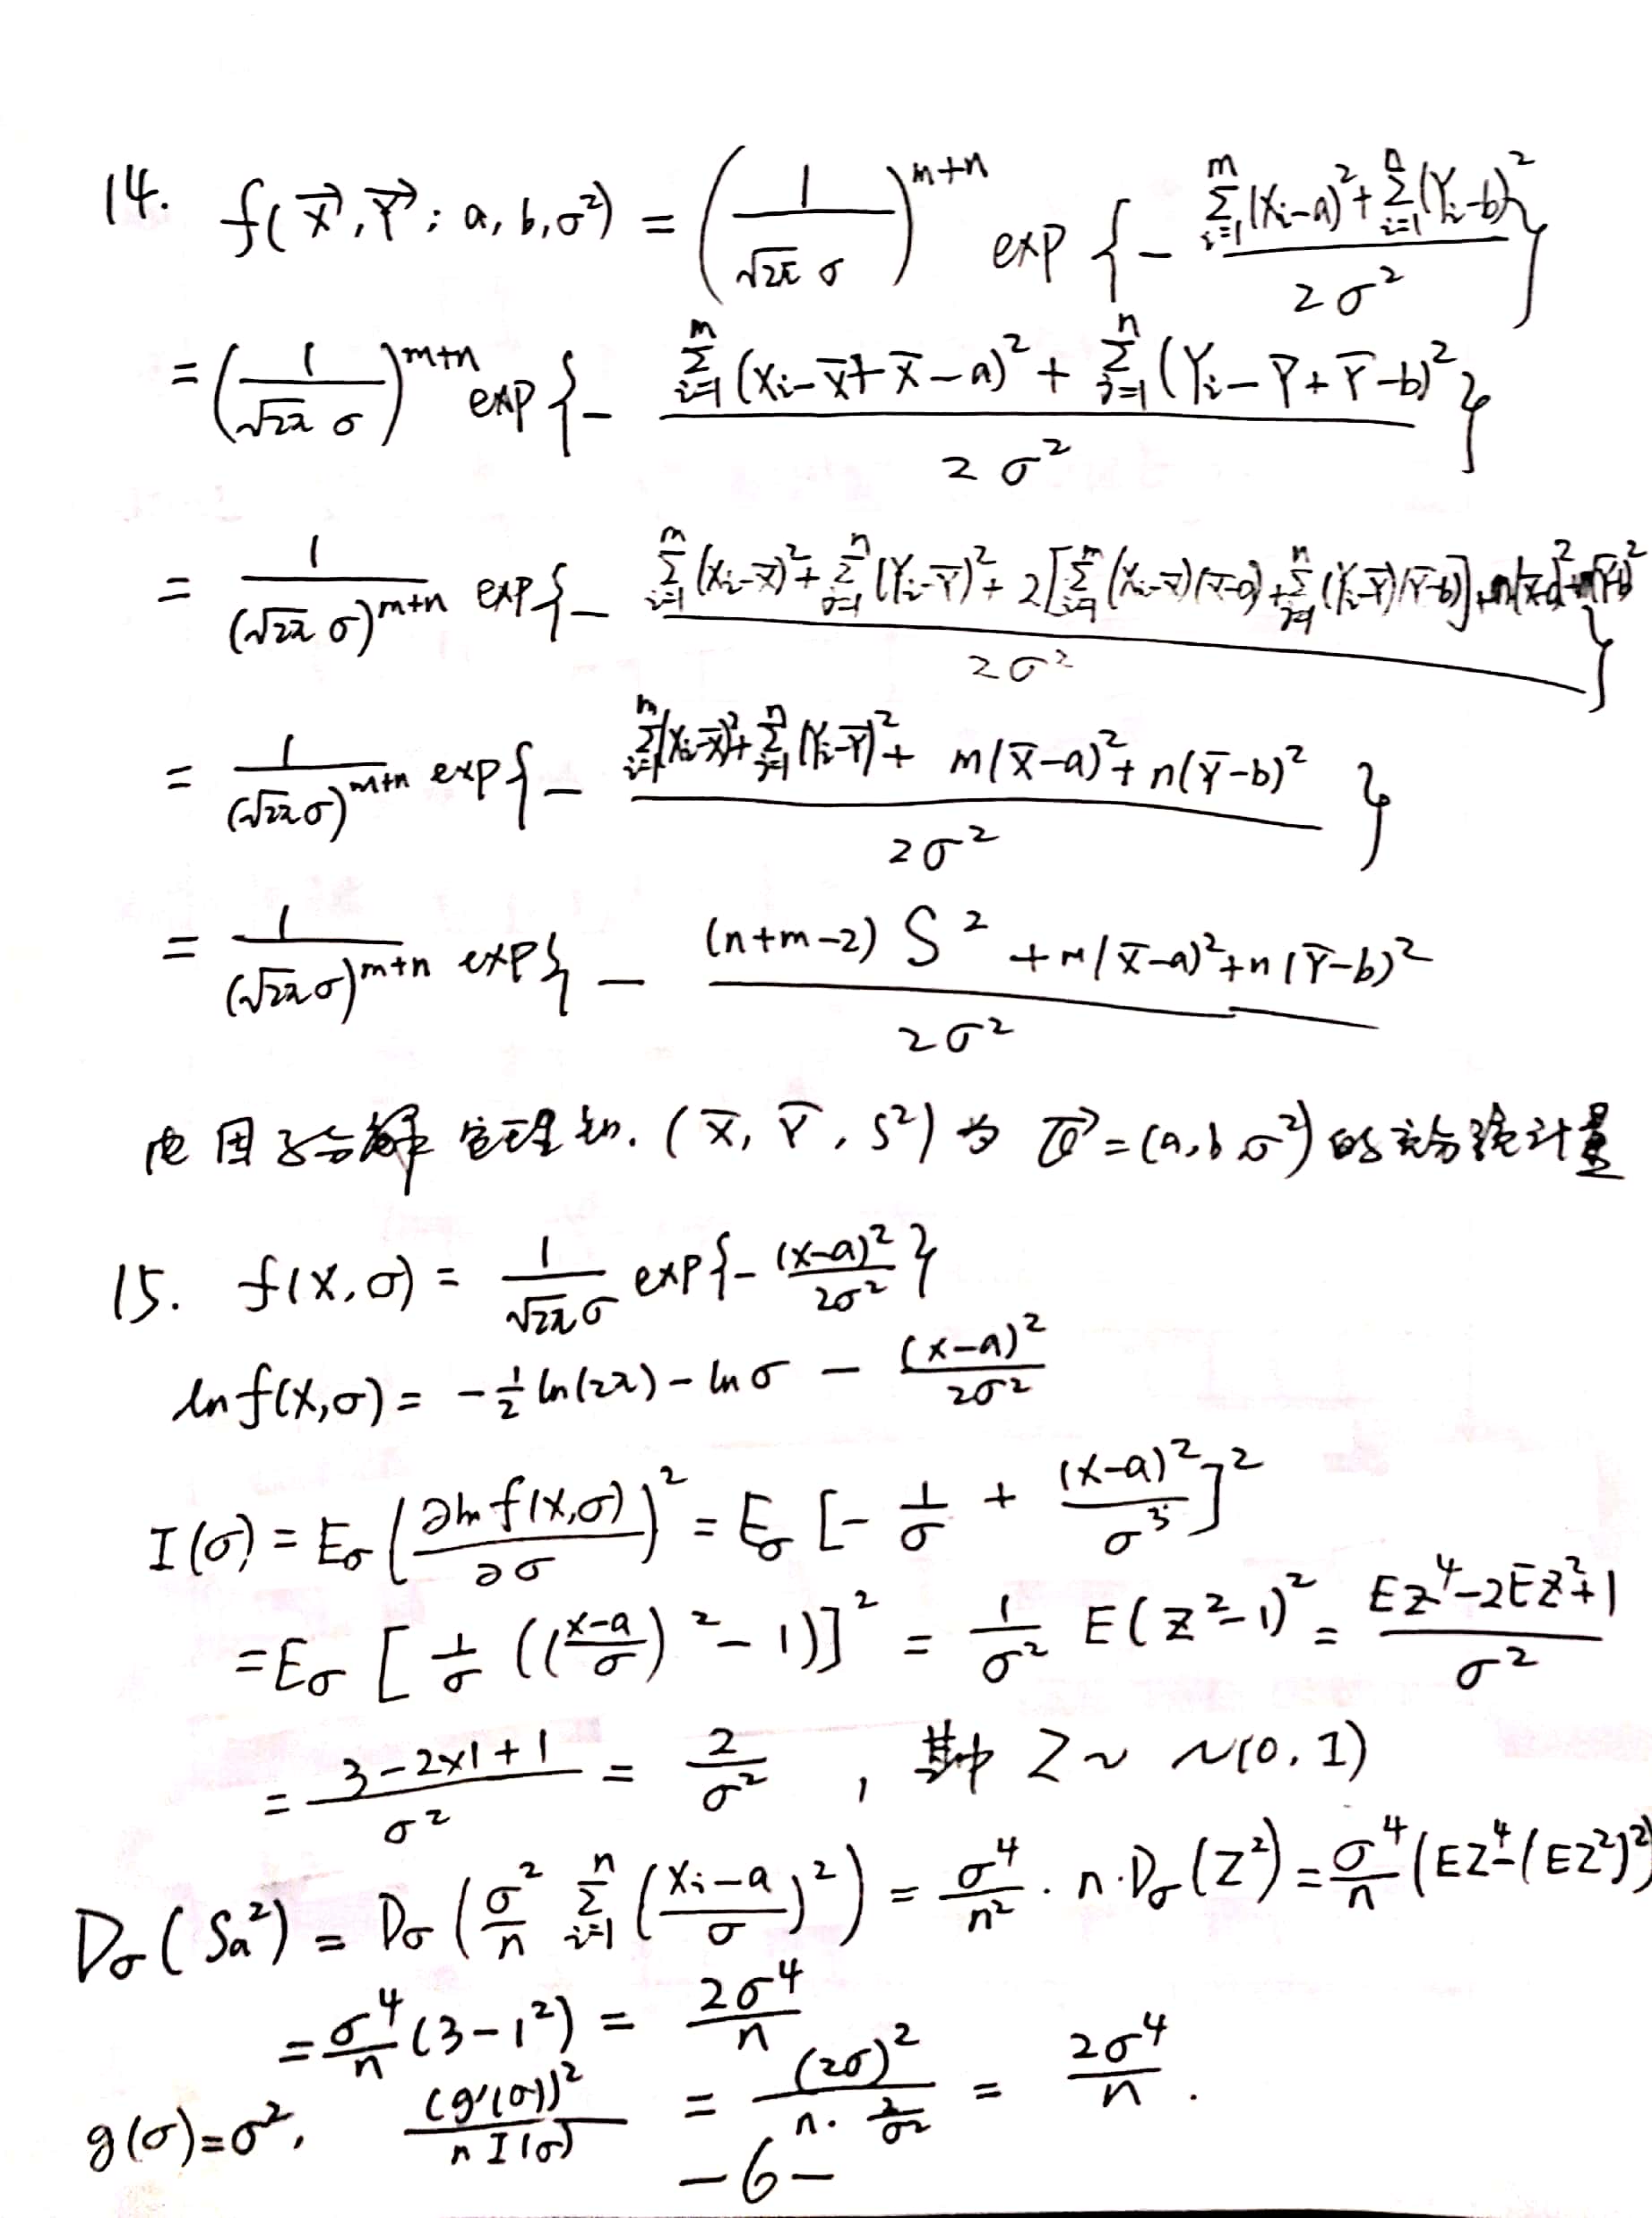 14. f(X⃗, Y⃗; a, b, σ²) = (1/(√2π σ))^(m+n) exp{- (Σ_{i=1}^m (Xi-a)² + Σ_{i=1}^n (Yi-b)²)/(2σ²)}
= (1/(√2π σ))^(m+n) exp{- (Σ_{i=1}^m (Xi-X̄+X̄-a)² + Σ_{j=1}^n (Yi-Ȳ+Ȳ-b)²)/(2σ²)}
= 1/(√2π σ)^(m+n) exp{- (Σ_{i=1}^m (Xi-X̄)² + Σ_{j=1}^n (Yi-Ȳ)² + 2[Σ_{i=1}^m (Xi-X̄)(X̄-a) + Σ_{j=1}^n (Yi-Ȳ)(Ȳ-b)] + m(X̄-a)² + n(Ȳ-b)²)/(2σ²)}
= 1/(√2π σ)^(m+n) exp{- (Σ_{i=1}^m (Xi-X̄)² + Σ_{j=1}^n (Yi-Ȳ)² + m(X̄-a)² + n(Ȳ-b)²)/(2σ²)}
= 1/(√2π σ)^(m+n) exp{- ((n+m-2) S² + m(X̄-a)² + n(Ȳ-b)²)/(2σ²)
由因子分解定理知. (X̄, Ȳ, S²) 为 θ⃗ = (a, b, σ²) 的充分统计量
15. f(X, σ) = 1/(√2π σ) exp{- (X-a)²/(2σ²)}
ln f(X, σ) = -½ ln(2π) - ln σ - (X-a)²/(2σ²)
I(σ) = Eσ(∂ln f(X,σ)/∂σ)² = Eσ[-1/σ + (X-a)²/σ³]²
= Eσ[1/σ (((X-a)/σ)² - 1)]² = 1/σ² E(Z²-1)² = (EZ⁴-2EZ²+1)/σ²
= (3-2×1+1)/σ² = 2/σ², 其中 Z ~ N(0, 1)
Dσ(Sa²) = Dσ(σ²/n Σ_{i=1}^n ((Xi-a)/σ)²) = σ⁴/n² · n·Dσ(Z²) = σ⁴/n (EZ⁴-(EZ²)²)
= σ⁴/n (3-1²) = 2σ⁴/n
g(σ)=σ², (g'(σ))²/(n I(σ)) = (2σ)²/(n· 2/σ²) = 2σ⁴/n.
-6-